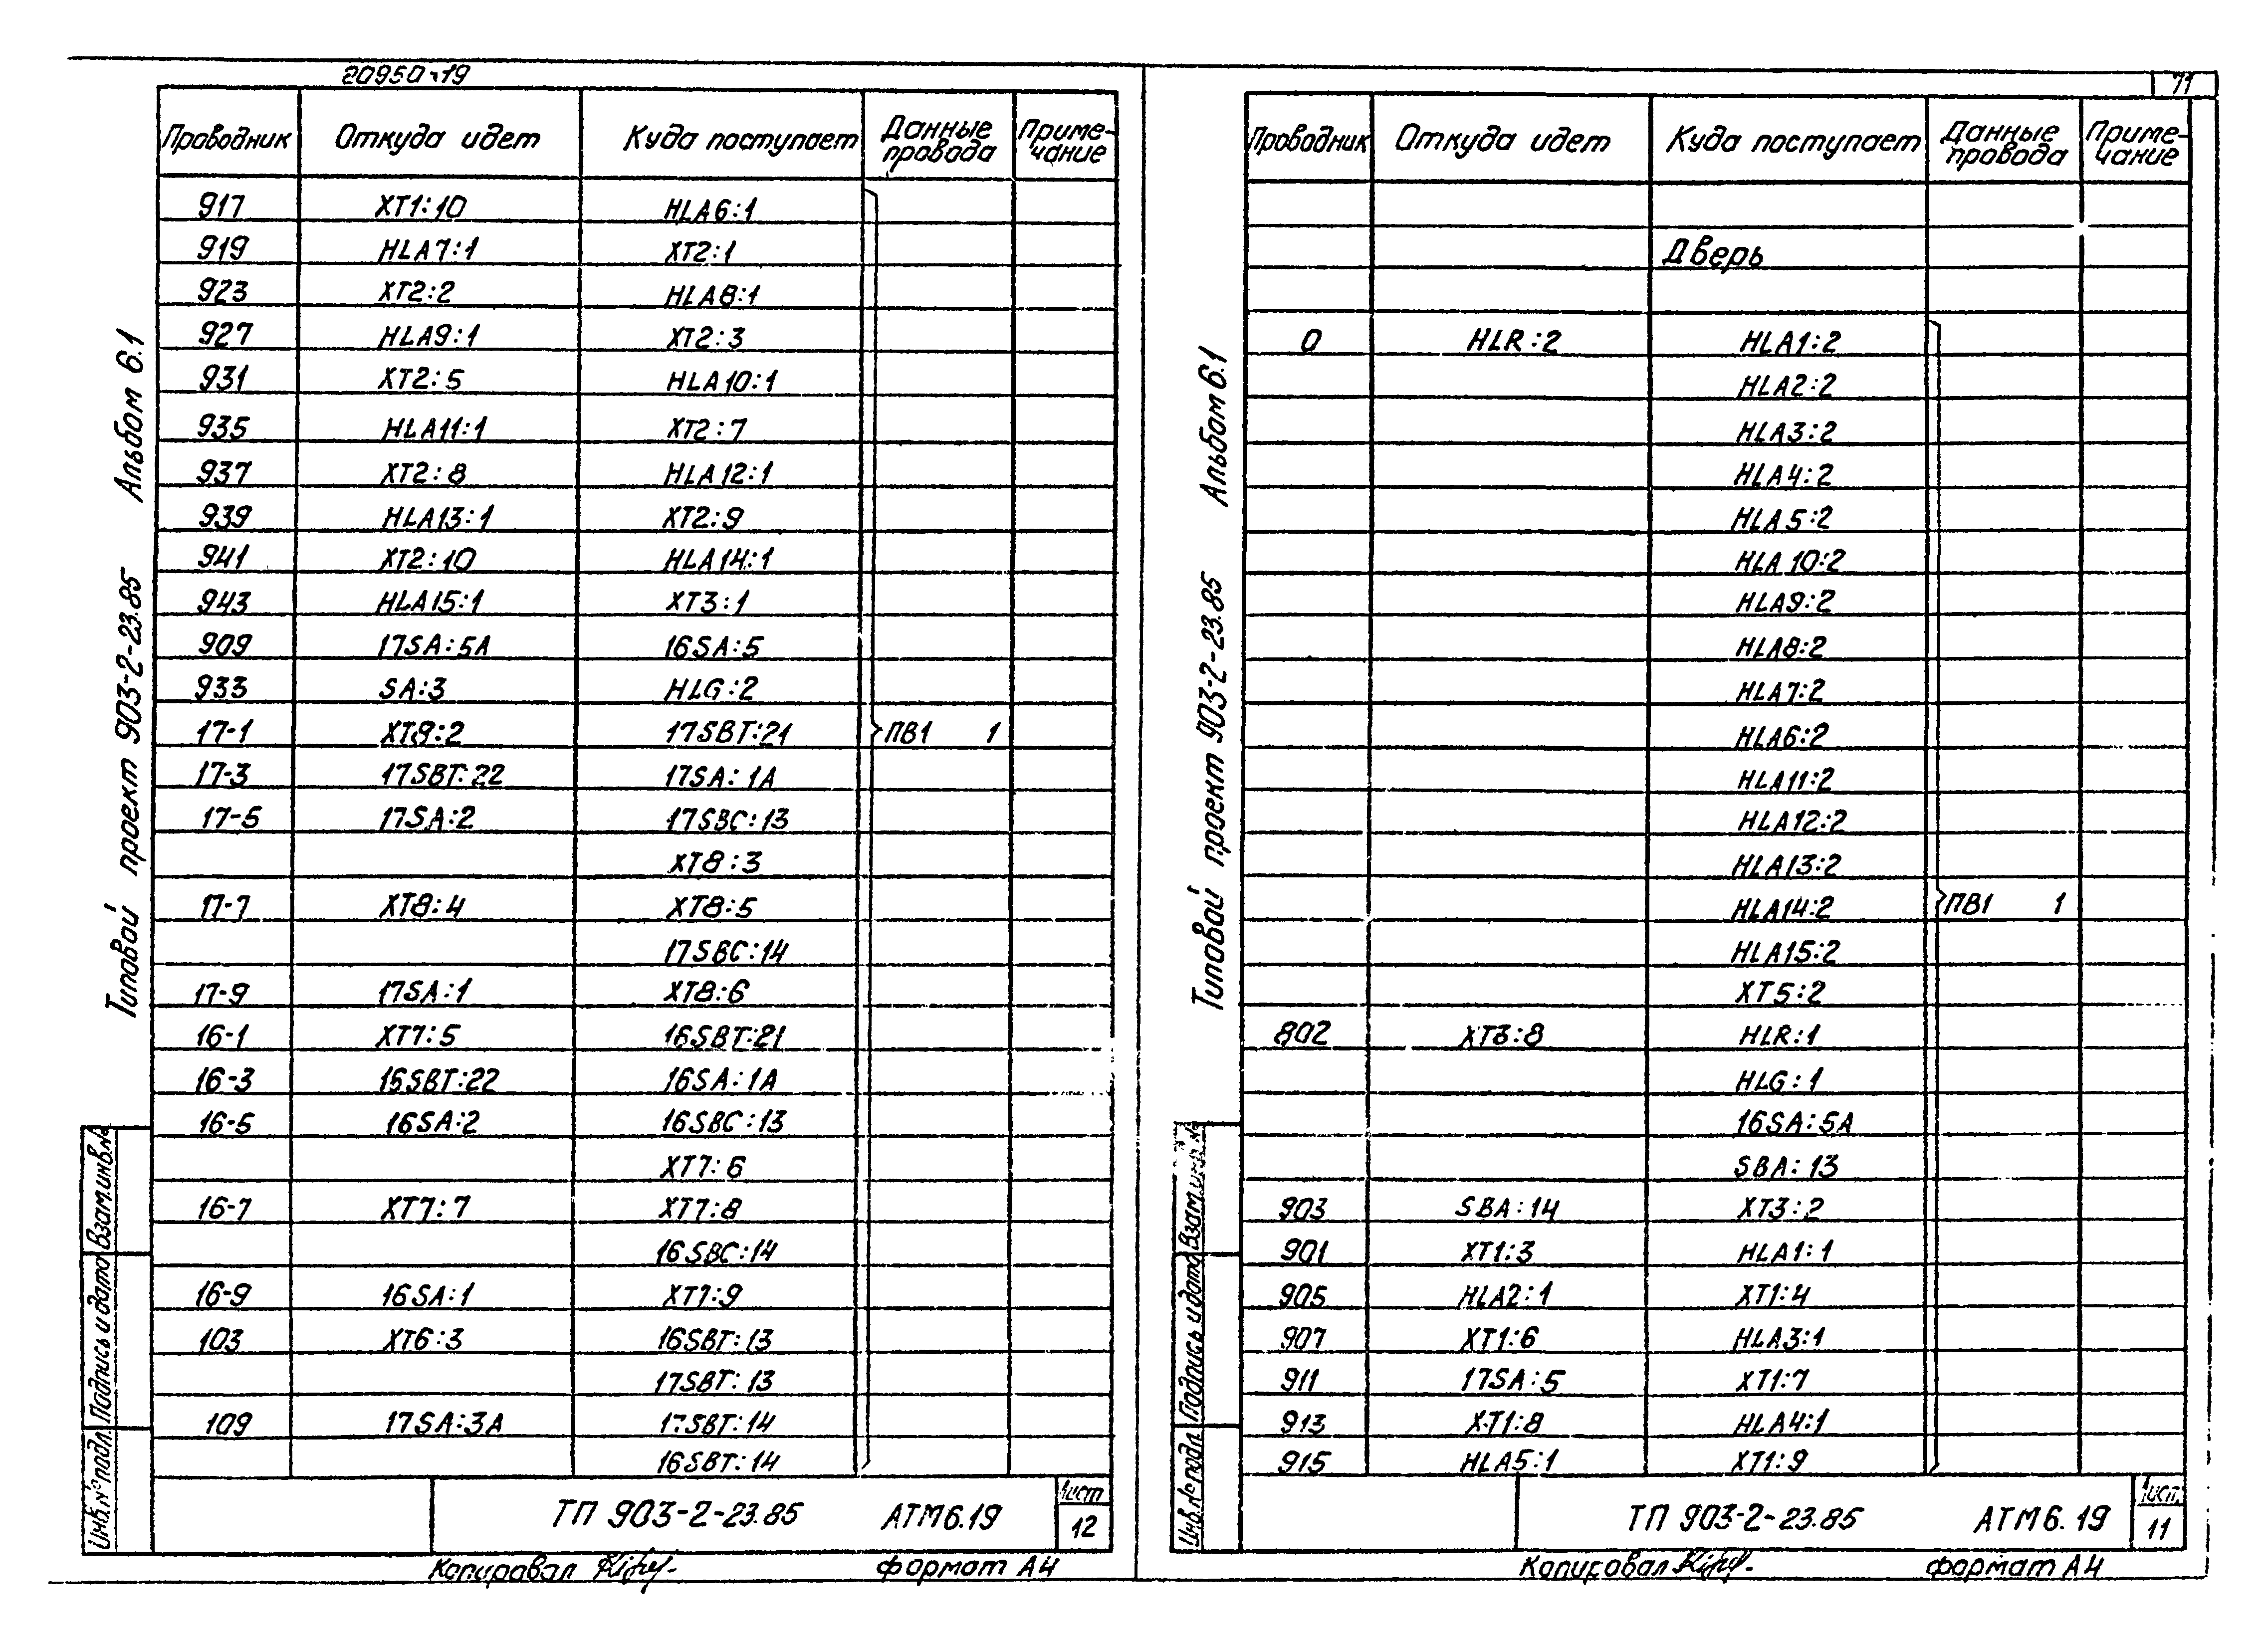 20950-19
Проводник Откуда идет Куда поступает Данные провода Приме-чание
917 XT1:10 HLA6:1
919 HLA7:1 XT2:1
923 XT2:2 HLA8:1
927 HLA9:1 XT2:3
931 XT2:5 HLA10:1
935 HLA11:1 XT2:7
937 XT2:8 HLA12:1
939 HLA13:1 XT2:9
941 XT2:10 HLA14:1
943 HLA15:1 XT3:1
909 17SA:5A 16SA:5
933 SA:3 HLG:2
17-1 XT8:2 17SBT:21 ПВ1 1
17-3 17SBT:22 17SA:1A
17-5 17SA:2 17SBC:13
XT8:3
17-7 XT8:4 XT8:5
17SBC:14
17-9 17SA:1 XT8:6
16-1 XT7:5 16SBT:21
16-3 16SBT:22 16SA:1A
16-5 16SA:2 16SBC:13
XT7:6
16-7 XT7:7 XT7:8
16SBC:14
16-9 16SA:1 XT7:9
103 XT6:3 16SBT:13
17SBT:13
109 17SA:3A 17SBT:14
16SBT:14
ТП 903-2-23.85 АТМ6.19 Лист
12
Копировал формат А4
Типовой проект 903-2-23.85 Альбом 6.1
Инв.№ подл. Подпись и дата Взам.инв.№
71
Проводник Откуда идет Куда поступает Данные провода Приме-чание
Дверь
0 HLR:2 HLA1:2
HLA2:2
HLA3:2
HLA4:2
HLA5:2
HLA10:2
HLA9:2
HLA8:2
HLA7:2
HLA6:2
HLA11:2
HLA12:2
HLA13:2
HLA14:2 ПВ1 1
HLA15:2
XT5:2
802 XT3:8 HLR:1
HLG:1
16SA:5A
SBA:13
903 SBA:14 XT3:2
901 XT1:3 HLA1:1
905 HLA2:1 XT1:4
907 XT1:6 HLA3:1
911 17SA:5 XT1:7
913 XT1:8 HLA4:1
915 HLA5:1 XT1:9
ТП 903-2-23.85 АТМ6.19 Лист
11
Копировал формат А4
Типовой проект 903-2-23.85 Альбом 6.1
Инв.№ подл. Подпись и дата Взам.инв.№